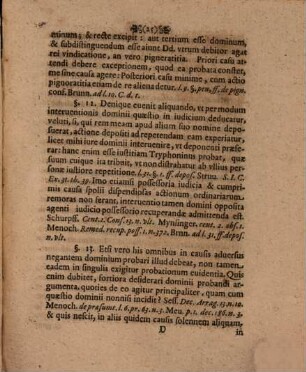 minum; & recte excipit: aut tertium esse dominum,
& subdistinguendum esse aiunt Dd. utrum debitor agat
rei vindicatione, an vero pigneratitia. Priori casu at-
tendi debere exceptionem, quod ea probata constet,
me sine causa agere: Posteriori casu minime, cum actio
pignoratitia etiam de re aliena detur. l. 9. §. pen. ff. de pign.
conf. Brunn. ad l. 10. C. d. t.
§. 12. Denique evenit aliquando, ut per modum
interventionis dominii quæstio in judicium deducatur,
veluti, si, qui rem meam apud alium suo nomine depo-
suerat, actione depositi ad repetendam eam experiatur,
licet mihi jure dominii intervenire, vt deponenti præfe-
rar: hanc enim esse justitiam Tryphoninus probat, quæ
suum cuique ita tribuit, vt non distrahatur ab ullius per-
sonæ justiore repetitione. l. 31. §. 1. ff. deposi. Struv. S. I. C.
Ex. 21. th. 39. Imo etiamsi possessoria judicia & cumpri-
mis causa spolii dispendiosas actionum ordinariarum
remoras non ferant, interventio tamen domini opposita
agenti judicio possessorio recuperandæ admittenda est.
Schurpff. Cent. 2. Conf. 15. n. vlt. Mynsinger. cent. 2. obs. 1.
Menoch. Remed. recup. poss. 1. n. 372. Brnn. ad l. 31. ff. depos.
n. vlt.
§. 13. Etsi vero his omnibus in causis adversus
negantem dominium probari illud debeat, non tamen
eadem in singulis exigitur probationum evidentia. Quis
enim dubitet, fortiora desiderari dominii probandi ar-
gumenta, quoties de eo agitur principaliter, quam cum
quæstio dominii nonnisi incidit? Sess. Dec. Arrag. 13. n. 10.
Menoch. de præsumt. l. 6. pr. 63. n. 3. Meu. p. 1. dec. 186. n. 3.
& quis nescit, in aliis quidem causis solennem aliquam,
D
in